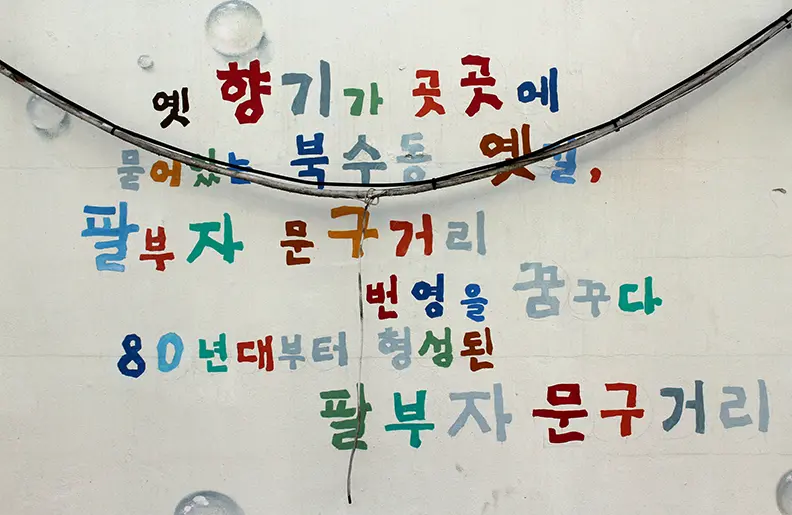 옛 향기가 곳곳에
묻어있는 북수동 옛길,
팔부자 문구거리
번영을 꿈꾸다
80년대부터 형성된
팔부자 문구거리